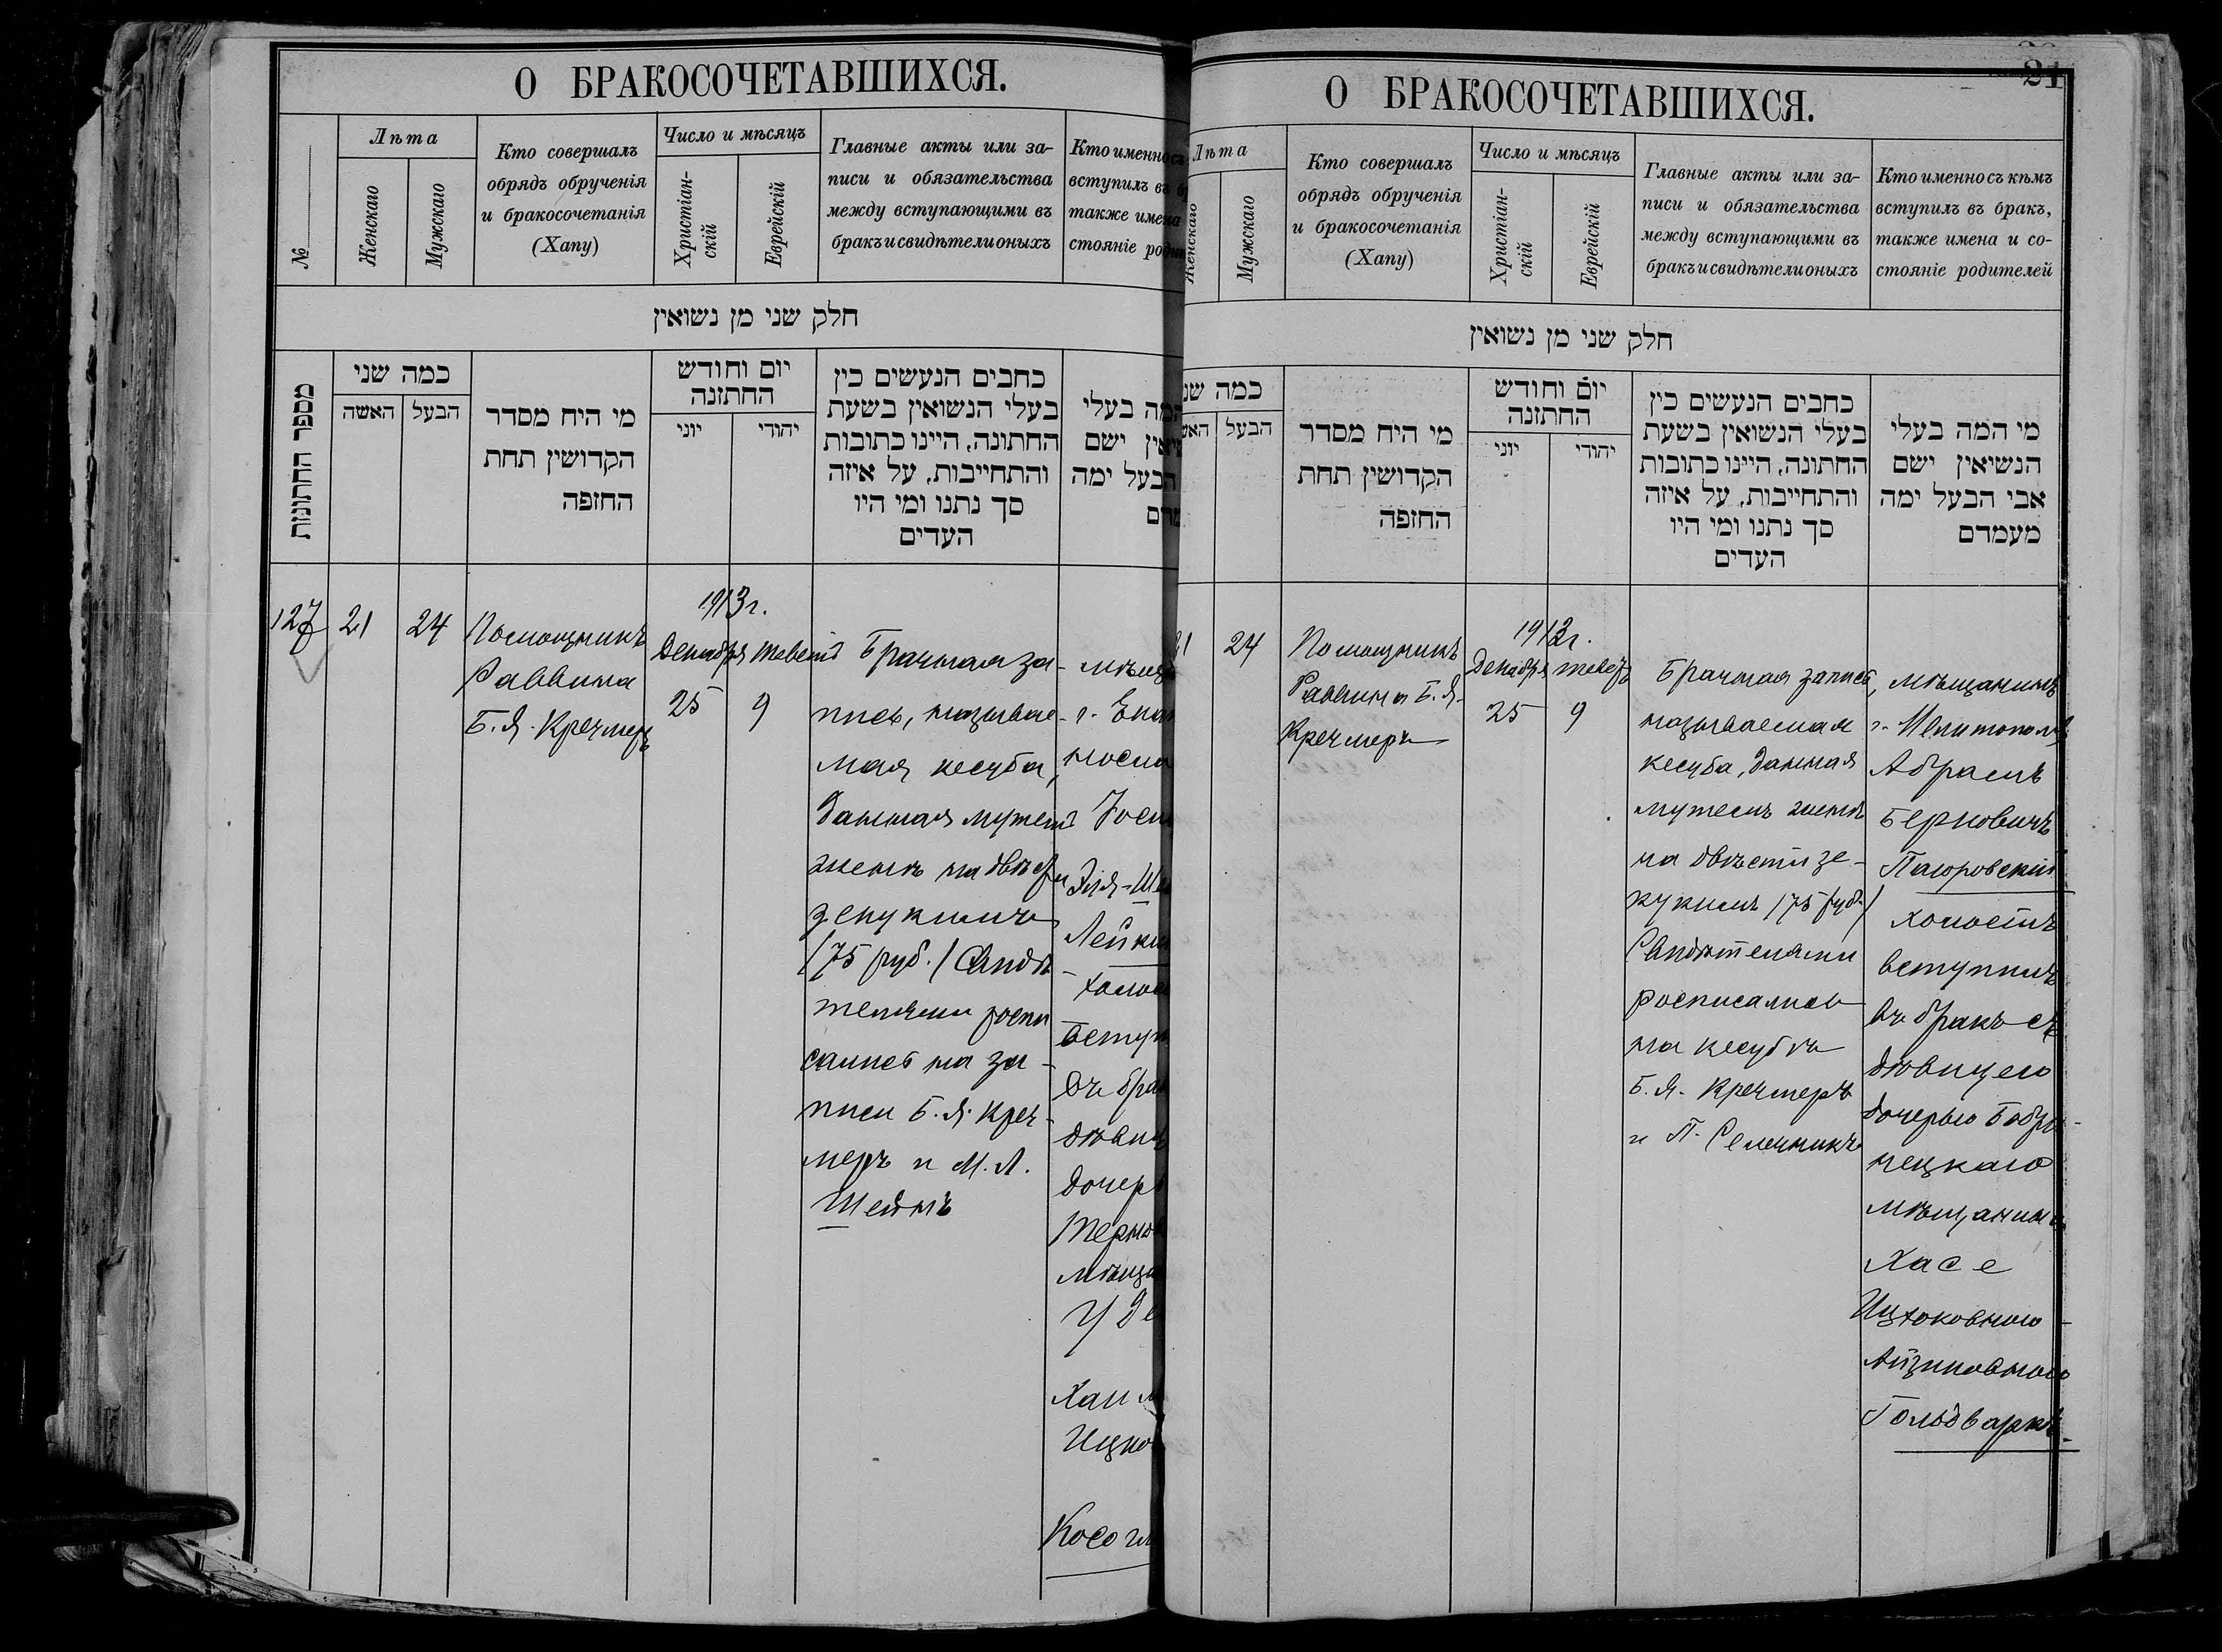 О БРАКОСОЧЕТАВШИХСЯ.
№
Лѣта
Женскаго
Мужскаго
Кто совершалъ
обрядъ обрученія
и бракосочетанія
(Хапу)
Число и мѣсяцъ
Христіан-
скій
Еврейскій
Главные акты или за-
писи и обязательства
между вступающими въ
бракъ и свидѣтели оныхъ
Кто именно съ
вступилъ въ бр
также имена
стояніе роди
חלק שני מן נשואין
מספר החתונות
כמה שני
האשה
הבעל
מי היח מסדר
הקדושין תחת
החזפה
יום וחודש
החתזנה
יוני
יהודי
כחבים הנעשים כין
בעלי הנשואין בשעת
החתונה, היינו כתובות
והתחייבות, על איזה
סך נתנו ומי היו
העדים
המה בעלי
ישם
הבעל ימה
127
21
24
Помощникъ
Раввина
Б.Я. Кречмеръ
1913 г.
Декабря
25
Теветъ
9
Брачная за-
пись, называе-
мая кесуба,
данная мужемъ
женѣ на двѣсти
зекукимъ
/75 руб./ Свидѣ-
телями роспи
сались на за-
писи Б.Я. Креч-
меръ и М.Л.
Шейнъ
мѣща
г. Екат
носла
Іосе
Эля-Ше
Лейки
холос
вступ
въ бра
дѣвиц
дочер
Терно
мѣща
Уде
Хаим
Ицко
Косогл
21
О БРАКОСОЧЕТАВШИХСЯ.
Лѣта
Женскаго
Мужскаго
Кто совершалъ
обрядъ обрученія
и бракосочетанія
(Хапу)
Число и мѣсяцъ
Христіан-
скій
Еврейскій
Главные акты или за-
писи и обязательства
между вступающими въ
бракъ и свидѣтели оныхъ
Кто именно съ кѣмъ
вступилъ въ бракъ,
также имена и со-
стояніе родителей
חלק שני מן נשואין
כמה שנ
האש
הבעל
מי היח מסדר
הקדושין תחת
החזפה
יום וחודש
החתזנה
יוני
יהודי
כחבים הנעשים כין
בעלי הנשואין בשעת
החתונה, היינו כתובות
והתחייבות, על איזה
סך נתנו ומי היו
העדים
מי המה בעלי
הנשיאין ישם
אבי הבעל ימה
מעמדם
21
24
Помощникъ
Раввина Б.Я.
Кречмеръ
1913 г.
Декабря
25
Теветъ
9
Брачная запись,
называемая
кесуба, данная
мужемъ женѣ
на двѣсти зе-
кукимъ /75 руб./
Свидѣтелями
росписались
на кесубѣ
Б.Я. Кречмеръ
и П. Селенникъ
мѣщанинъ
г. Мелитополя
Абрамъ
Берковичъ
Паюровскій
холостъ
вступилъ
въ бракъ съ
дѣвицею
дочерью Бобри-
нецкаго
мѣщанина
Хасе
Ицхоковною-
Айзиковною
Гольдваркъ.